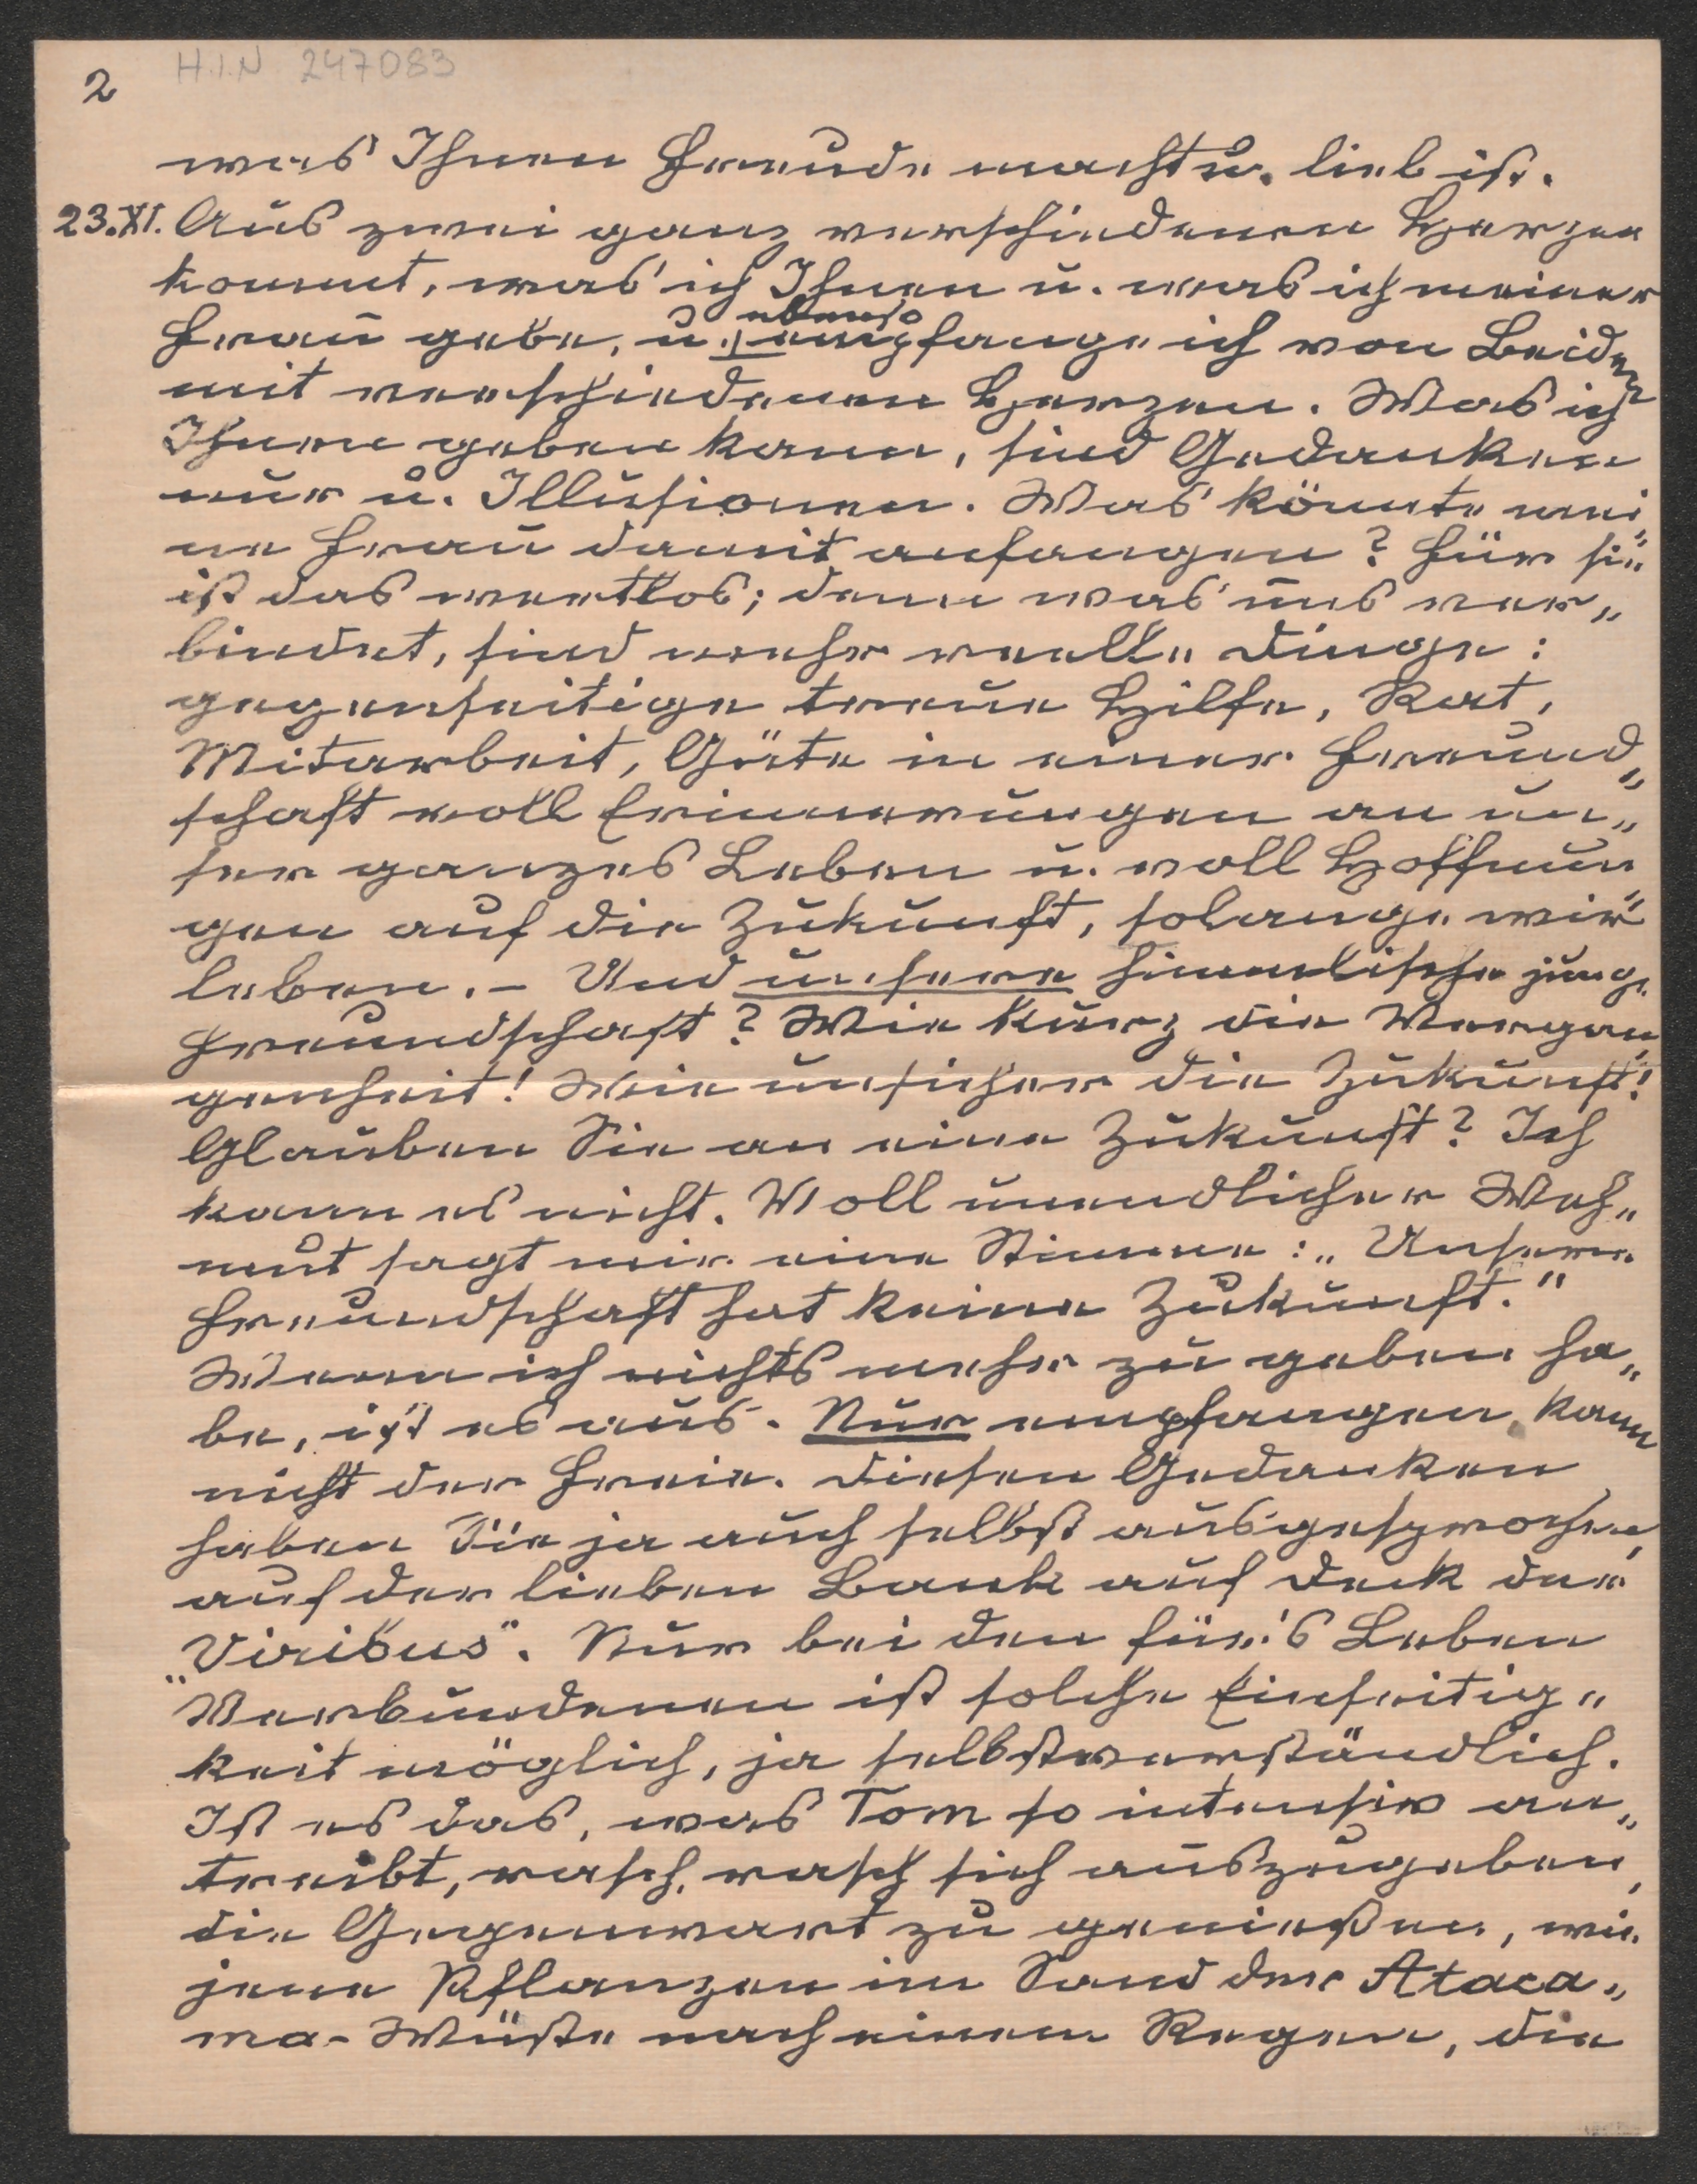 H.I.N 247083
2
was Ihnen Freude macht u. lieb ist.
23.XI. Aus zwei ganz verschiedenen Herzen
kommt, was ich Ihnen u. was ich meiner
Frau gebe, u. ebenso empfange ich von Beiden
mit verschiedenen Herzen. Was ich
Ihnen geben kann, sind Gedanken
nur u. Illusionen. Was könnte mei„
ne Frau damit anfangen? Für sie
ist das wertlos; denn was uns ver„
bindet, sind mehr reelle Dinge:
gegenseitige treue Hilfe, Rat,
Mitarbeit, Güte in einer Freund„
schaft voll Erinnerungen an un„
ser ganzes Leben u. voll Hoffnun„
gen auf die Zukunft, solange wir
leben. – Und unsere himmlische junge
Freundschaft? Wie kurz die Vergan„
genheit! Wie unsicher die Zukunft!
Glauben Sie an eine Zukunft? Ich
kann es nicht. Voll unendlicher Weh„
mut sagt mir eine Stimme: „Unsere
Freundschaft hat keine Zukunft."
Wenn ich nichts mehr zu geben ha„
be, ist es aus. Nur empfangen kann
nicht der Freie. Diesen Gedanken
haben Sie ja auch selbst ausgesprochen,
auf der lieben Bank auf Deck der
„Viribus". Nur bei den für's Leben
Verbundenen ist solche Einseitig„
keit möglich, ja selbstverständlich.
Ist es das, was Tom so intensiv an„
treibt, rasch, rasch sich auszugeben,
die Gegenwart zu genießen, wie
jene Pflanzen im Sand der Ataca„
ma-Wüste nach einem Regen, die